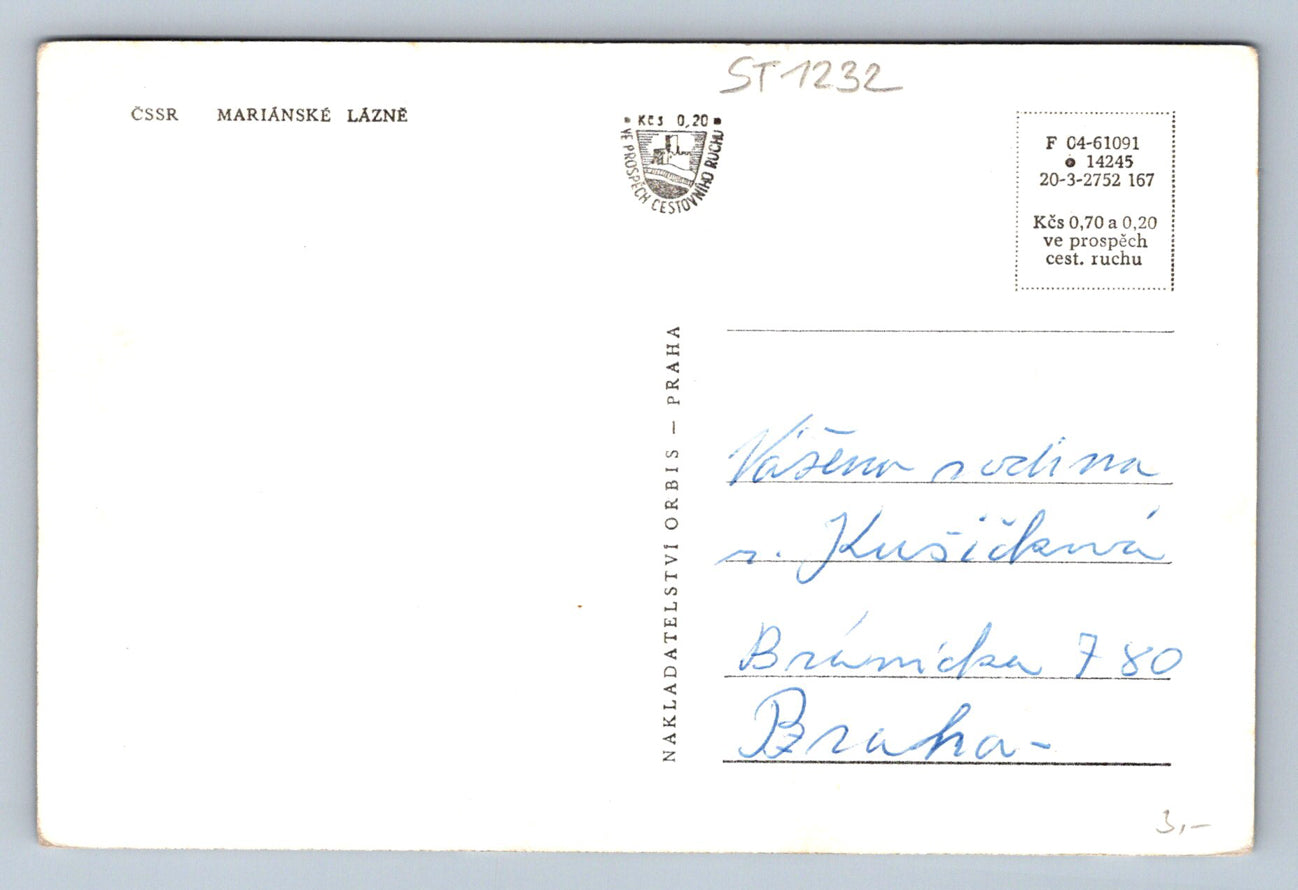 ST 1232
ČSSR MARIÁNSKÉ LÁZNĚ
Kčs 0,20
VE PROSPĚCH CESTOVNÍHO RUCHU
F 04-61091
14245
20-3-2752 167
Kčs 0,70 a 0,20
ve prospěch
cest. ruchu
NAKLADATELSTVÍ ORBIS — PRAHA
Vášena rodina
r. Kušičková
Bránicka 780
Praha-
3,-